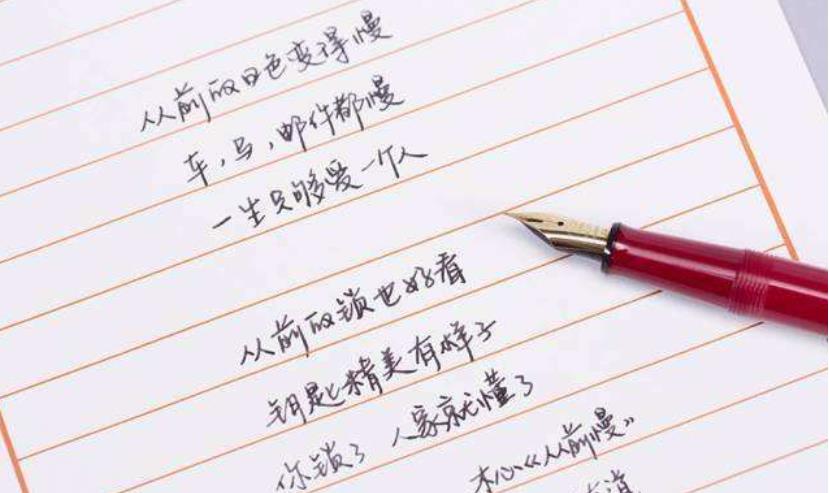 从前的日色变得慢
车,马,邮件都慢
一生只够爱一个人
从前的锁也好看
钥匙精美有样子
你锁了 人家就懂了
木心《从前慢》